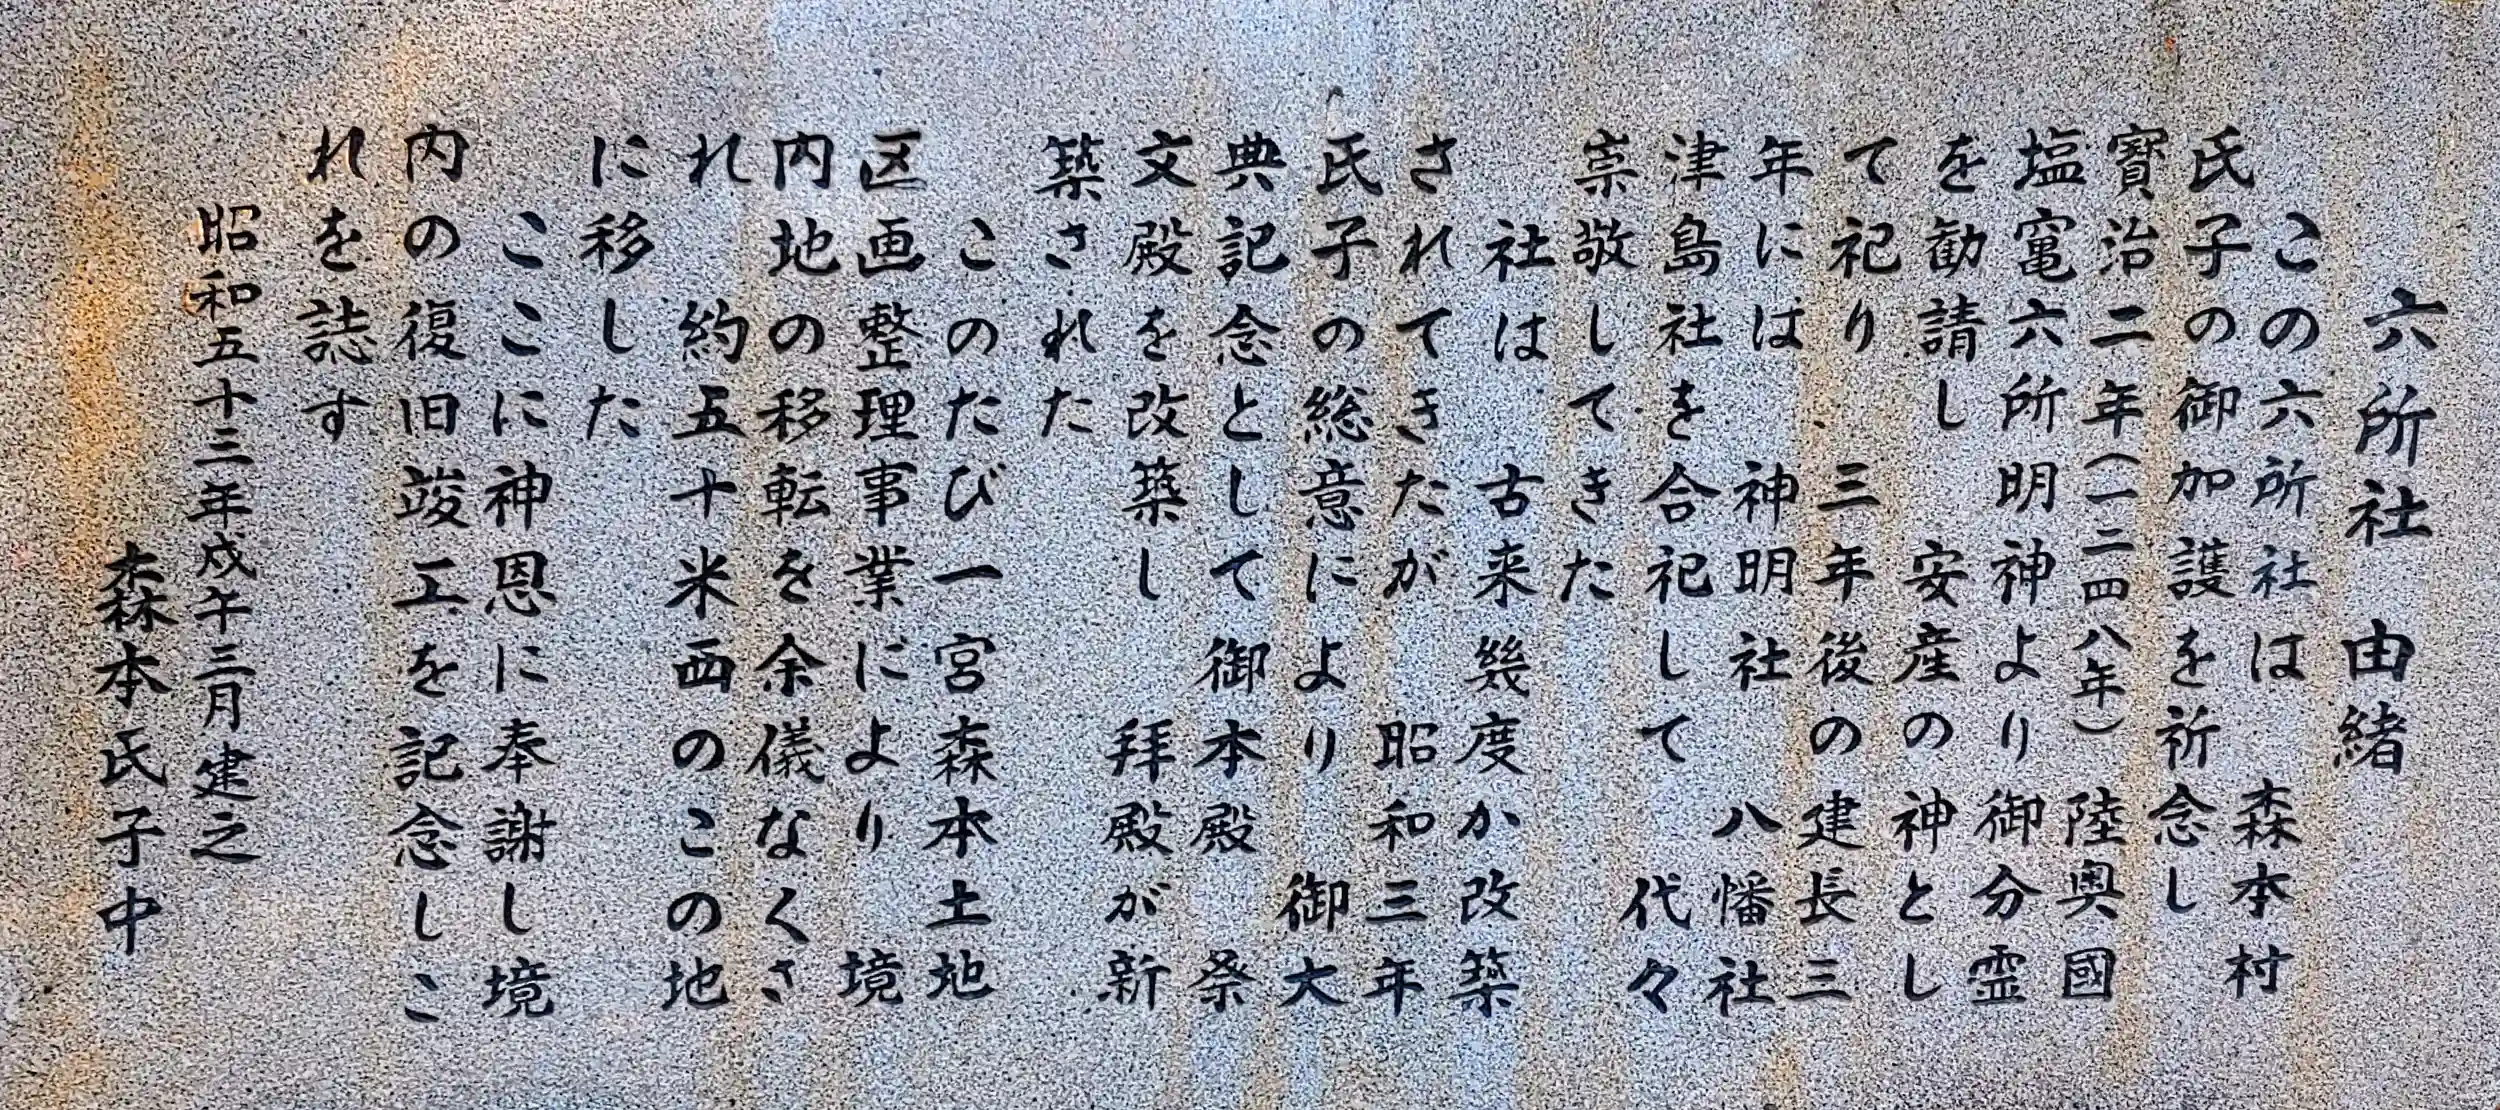 六所社 由緒
この六所社は 森本村
氏子の御加護を祈念し
寶治二年(一二四八年) 陸奥國
塩竃六所明神より御分霊
を勧請し 安産の神とし
て祀り 三年後の建長三
年には 神明社 八幡社
津島社を合祀して 代々
崇敬してきた
社は 古来幾度か改築
されてきたが 昭和三年
氏子の総意により 御大
典記念として御本殿 祭
文殿を改築し 拝殿が新
築された
このたび一宮森本土地
区画整理事業により 境
内地の移転を余儀なくさ
れ 約五十米西のこの地
に移した
ここに神恩に奉謝し境
内の復旧竣工を記念しこ
れを誌す
昭和五十三年戊午三月建之
森本氏子中